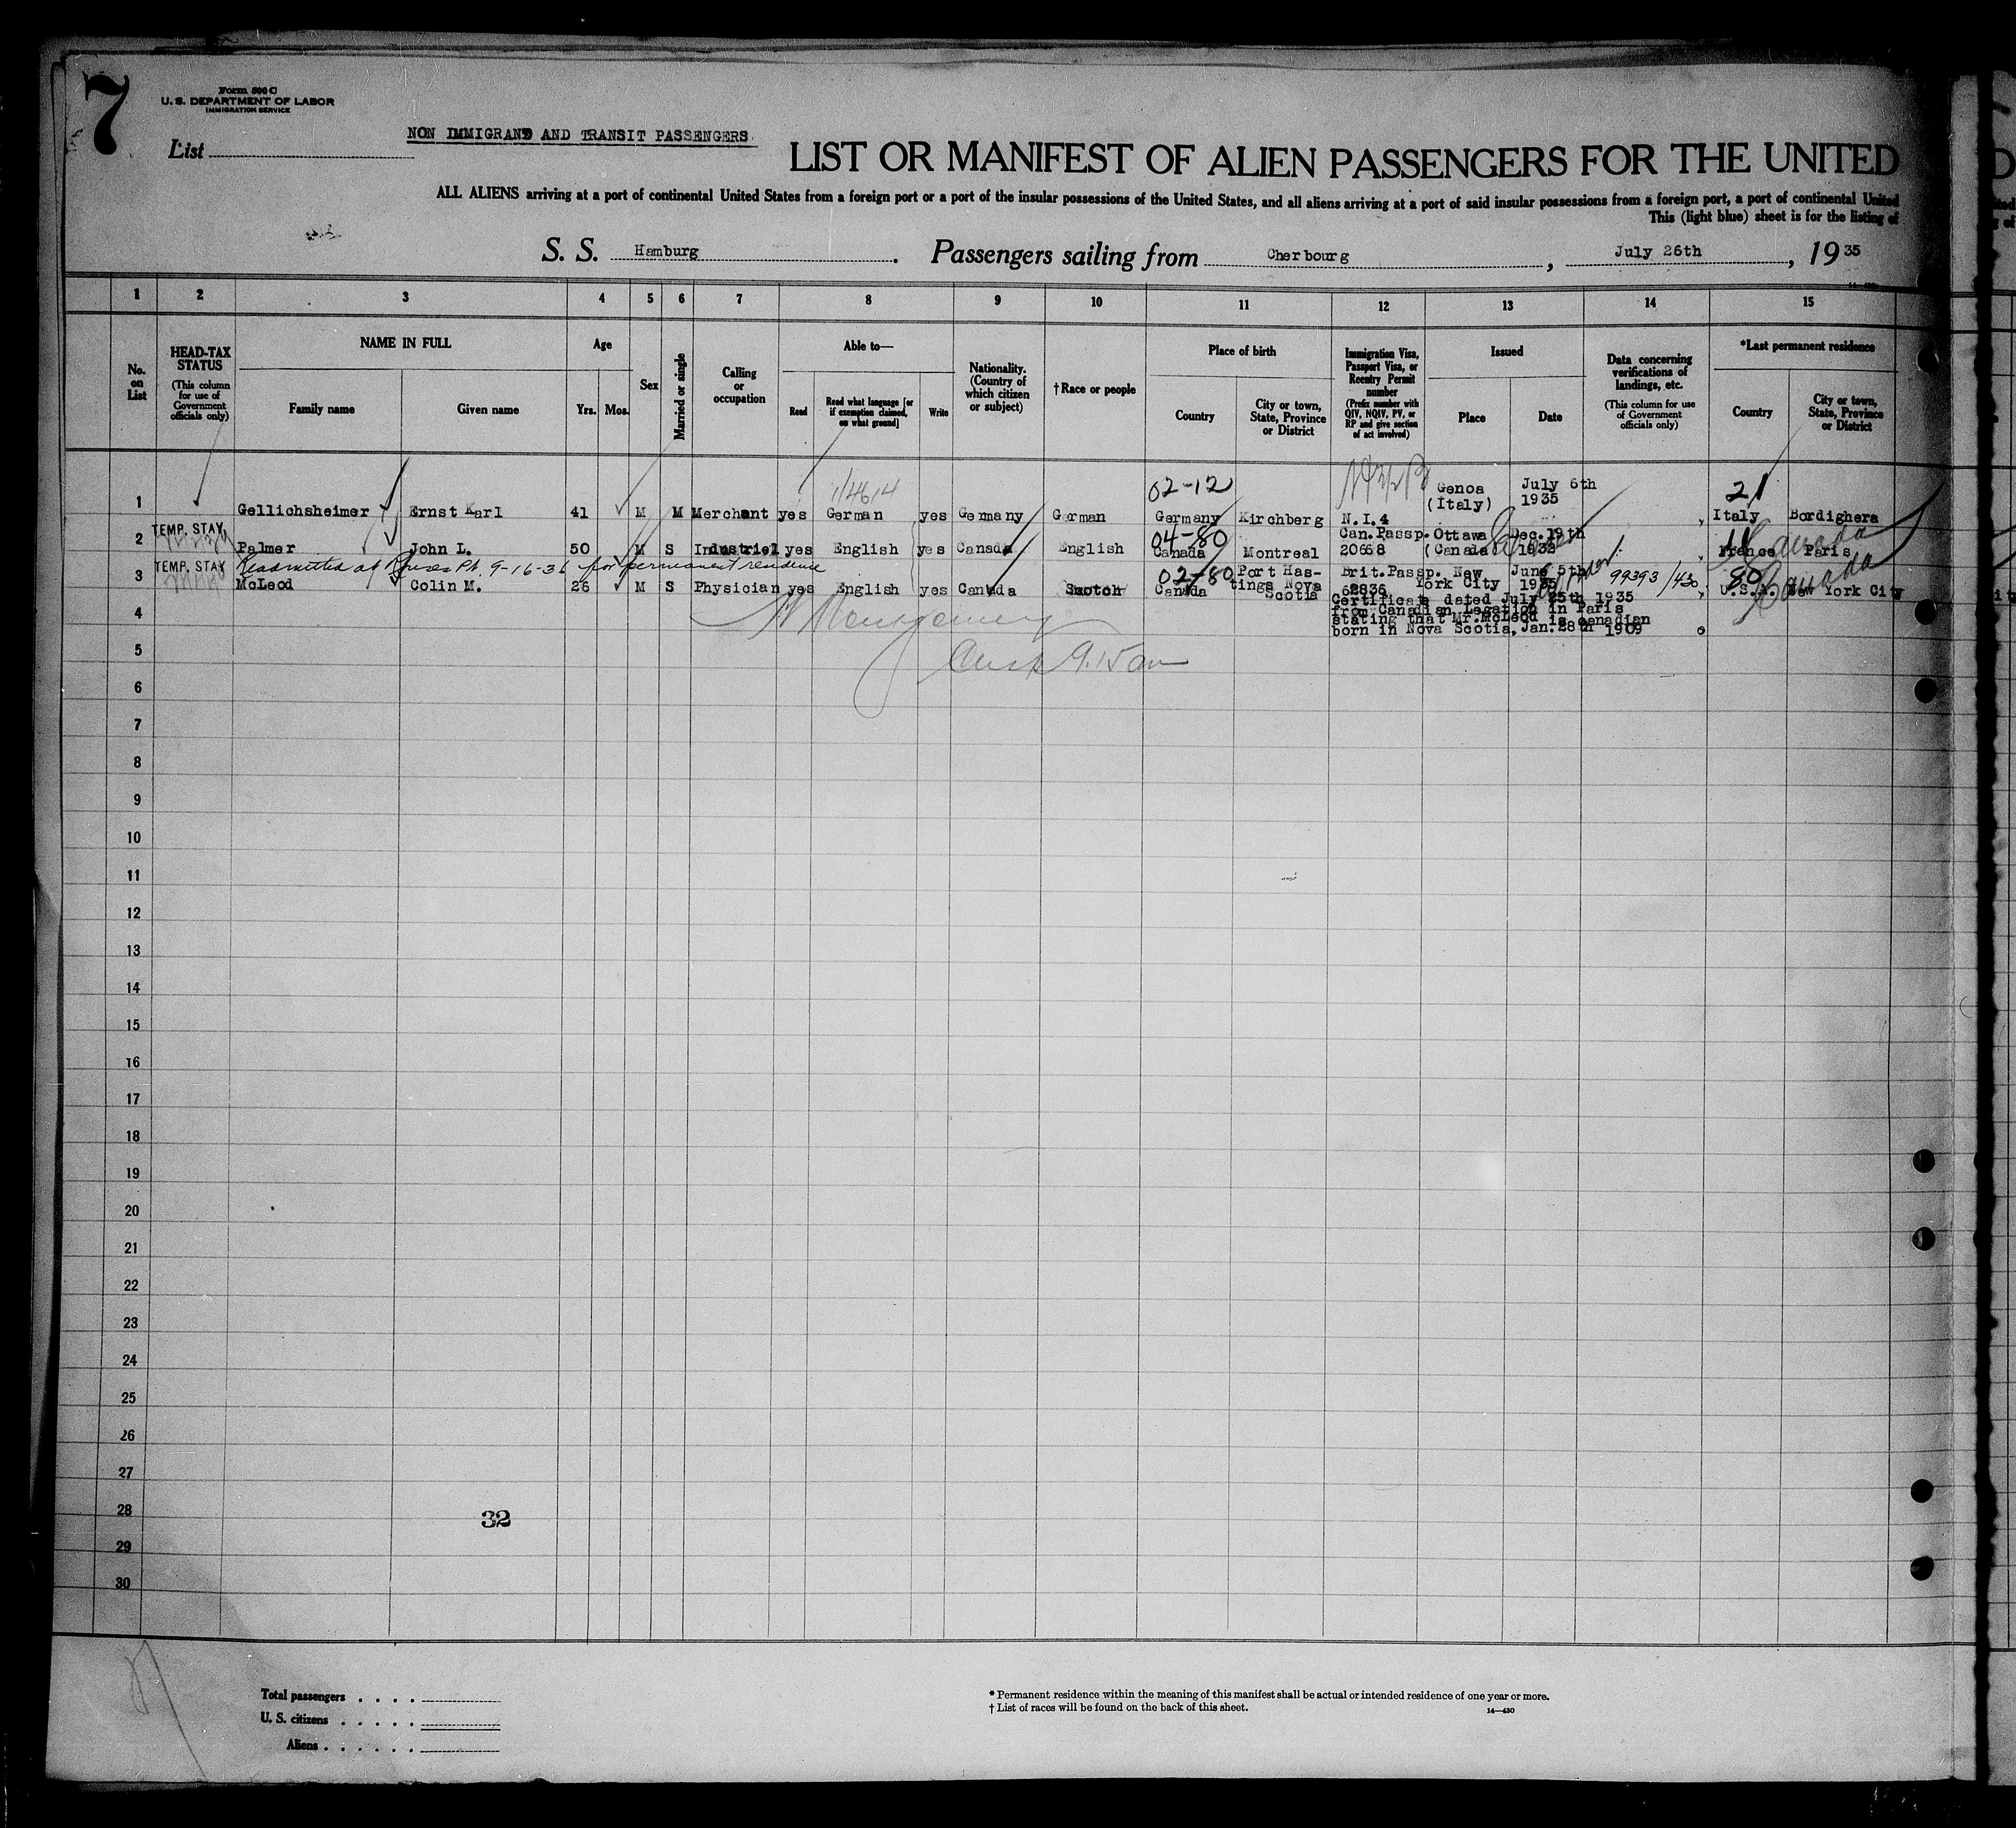 7
Form 500 C
U. S. DEPARTMENT OF LABOR
IMMIGRATION SERVICE
NON IMMIGRAND AND TRANSIT PASSENGERS
List
LIST OR MANIFEST OF ALIEN PASSENGERS FOR THE UNITED
ALL ALIENS arriving at a port of continental United States from a foreign port or a port of the insular possessions of the United States, and all aliens arriving at a port of said insular possessions from a foreign port, a port of continental United
This (light blue) sheet is for the listing of
S. S. Hamburg. Passengers sailing from Cherbourg, July 26th, 1935
1 2 3 4 5 6 7 8 9 10 11 12 13 14 15
No. on List
HEAD-TAX STATUS
(This column for use of Government officials only)
NAME IN FULL
Family name Given name
Age
Yrs. Mos.
Sex
Married or single
Calling or occupation
Able to—
Read
Read what language [or if exemption claimed, on what ground]
Write
Nationality. (Country of which citizen or subject)
†Race or people
Place of birth
Country
City or town, State, Province or District
Immigration Visa, Passport Visa, or Reentry Permit number
(Prefix number with QIV, NQIV, PV, or RP and give section of act involved)
Issued
Place Date
Data concerning verifications of landings, etc.
(This column for use of Government officials only)
*Last permanent residence
Country
City or town, State, Province or District
1/4614 02-12 Genoa (Italy) July 6th 1935 21
1 Gellichsheimer Ernst Karl 41 M M Merchant yes German yes Germany German Germany Kirchberg N.I.4 Italy Bordighera
TEMP. STAY 04-80 Can.Passp. Ottawa Dec.19th
2 Palmer John L. 50 M S Industriel yes English yes Canada English Canada Montreal 20658 (Canada) 1932 France Paris Canada
TEMP. STAY Readmitted at Rouses Pt. 9-16-35 for permanent residence 02-80 Port Has- Brit.Passp. New June 5th 99393/430 80 Canada
3 McLeod Colin M. 26 M S Physician yes English yes Canada Scotch Canada tings Nova Scotia 62836 York City 1935 U.S.A. New York City
Certificate dated July 25th 1935
from Canadian Legation in Paris
stating that Mr.McLeod is canadian
born in Nova Scotia, Jan.28th 1909
4
Montgomery
5
9.15 am
6
7
8
9
10
11
12
13
14
15
16
17
18
19
20
21
22
23
24
25
26
27
28
32
29
30
Total passengers
U. S. citizens
Aliens
* Permanent residence within the meaning of this manifest shall be actual or intended residence of one year or more.
† List of races will be found on the back of this sheet.
14—430